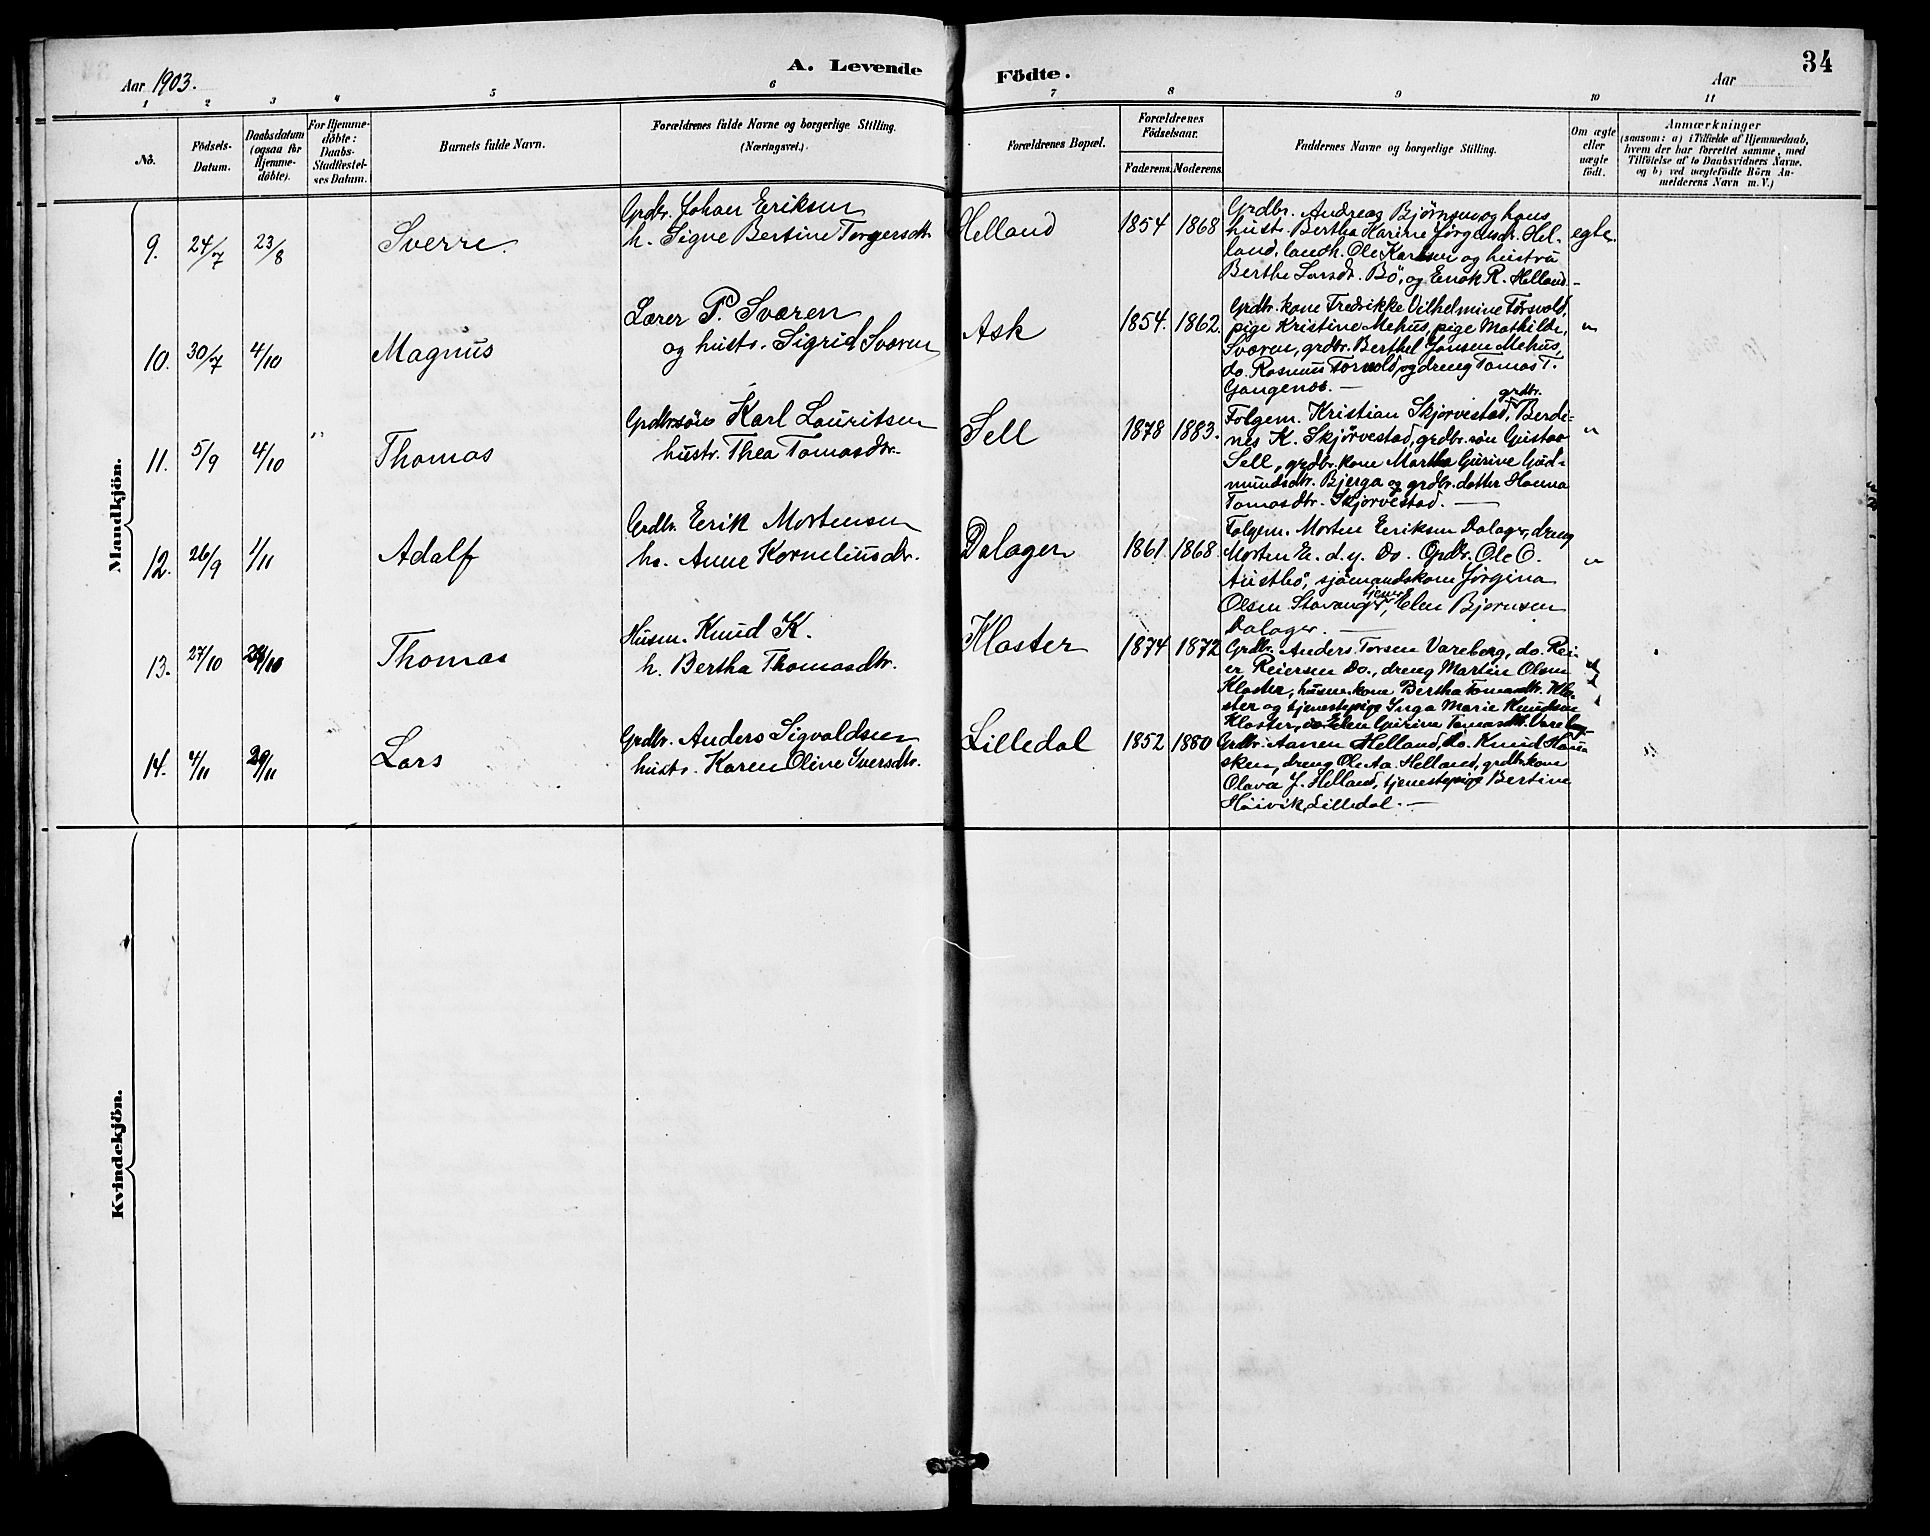 34
Aar 1903.
A. Levende
Födte.
Aar
1 2 3 4 5 6 7 8 9 10 11
No.
Födsels-Datum.
Daabsdatum (ogsaa for Hjemme-döbte).
For Hjemme-döbte: Daabs-Stadfæstel-ses Datum.
Barnets fulde Navn.
Forældrenes fulde Navne og borgerlige Stilling.
(Næringsvei.)
Forældrenes Bopæl.
Forældrenes Födselsaar.
Faderens. Moderens.
Faddernes Navne og borgerlige Stilling.
Om ægte eller uægte födt.
Anmærkninger
(saasom: a) i Tilfælde af Hjemmedaab,
hvem der har forrettet samme, med
Tilföielse af to Daabsvidners Navne.
og b) ved uægtefödte Börn An-
melderens Navn m. V.)
Mandkjön.
9. 24/7 23/8 Sverre.
Grdbr. Johan Eriksen
h. Signe Bertine Torgersdtr.
Helland 1854 1868
Grdbr. Andreas Bjørnsen og hans
hustr. Bertha Karine Jørgensdr. Hel-
land, landh. Ole Karlsen og hustru
Berthe Larsdr. Bö, og Enok R. Helland.-
egte.
10. 30/7 4/10 Magnus
Lærer P. Sværen
og hustr. Sigrid Sværen
Ask 1854. 1862.
Grdbr. kone Fredrikke Vilhelmine Torsvold,
pige Kristine Mehus, pige Mathilde
Sværen, grdbr. Berthel Jonsen Mehus,
do. Rasmus Torvold, og dreng Tomas T.
Gangenes. —
"
11. 5/9 4/10 Thomas
Grdbrsön Karl Lauritsen
hustr. Thea Tomasdtr.
Sell 1878 1883.
grdbr.
Folgem. Kristian Skjorvestad, Berdi-
nes K. Skjørvestad, grdbr. søn Gustav
Sell, grdbr. kone Martha Gurine Gud-
mundsdtr. Bjerga og grdbr. datter Hanna
Tomasdtr. Skjorvestad. —
"
12. 26/9 1/11 Adolf
Grdbr. Eerik Mortensen
h. Anne Korneliusdtr.
Dalager 1861 1868
Folgem. Morten Eriksen Dalager, dreng
Morten E. d. y. Do. Grdbr. Ole O.
Austbö, sjömandskone Jørgina
Olsen Stavanger, tjener Elen Bjørnsen
Dalager. —
"
13. 27/10 Thomas
Husm. Knud K.
h. Bertha Thomasdtr.
Kloster 1874 1872
Grdbr. Anders Torsen Vareberg, do. Rei-
er Reiersen Do., dreng Martin Olsen
Kloster, husm. kone Bertha Tomasdtr. Klo-
ster og tjenestepige Inga Marie Knudsen
Kloster, do Elen Gurine Tomasdt. Vareberg.
14. 4/11 29/11 Lars
Grdbr. Anders Sigvaldsen
hustr. Karen Oline Iversdtr.
Lilledal 1852 1880
Grdbr. Aanen Helland, do. Knud Hau-
sken, dreng Ole Aa. Helland, grdbr. kone
Olava J. Helland, tjenestepige Bertine
Høivik, Lilledal. —
"
Kvindekjön.